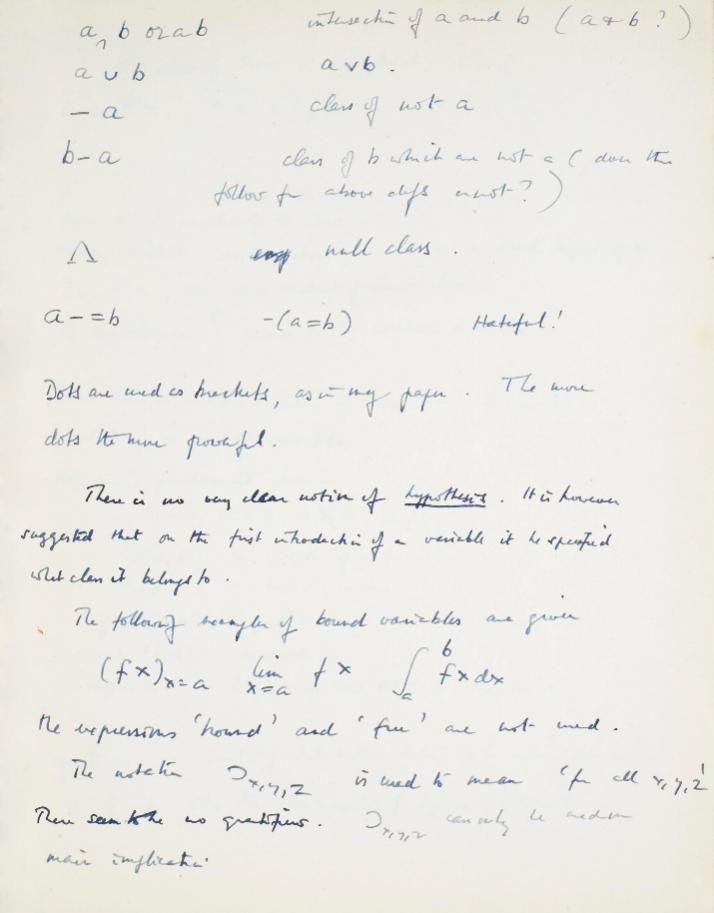 a ∩ b or ab intersection of a and b (a & b ?)
a ∪ b a v b .
– a class of not a
b – a class of b which are not a ( does this
follow fr above defs or not? )
Λ null class .
a – = b –(a = b) Hateful!
Dots are used as brackets, as in my paper . The more
dots the more powerful .
There is no very clear notion of hypothesis . It is however
suggested that on the first introduction of a variable it be specified
what class it belongs to .
The following examples of bound variables are given
(f x)x=a lim x=a f x ∫ab f x dx
the expressions 'bound' and 'free' are not used .
The notation ⊃x,y,z is used to mean 'for all x, y, z'
There seem to be no quantifiers . ⊃x,y,z can only be used on
main implication